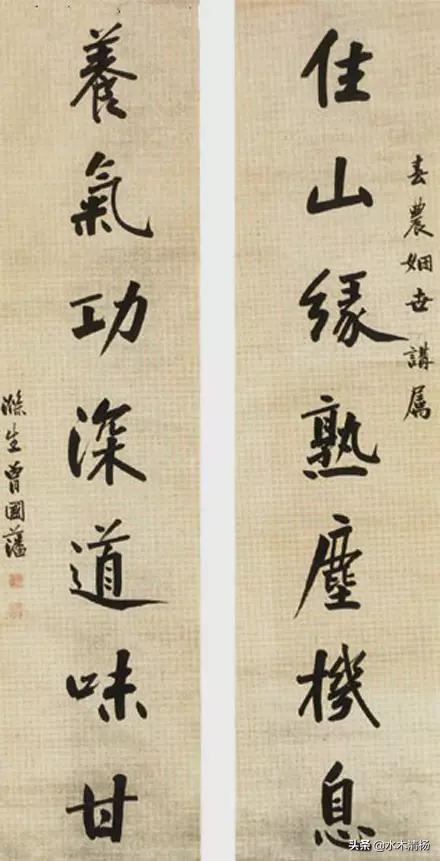 春農姻世講属
住山緣熟塵機息
養氣功深道味甘
滌生曾國藩
头条 @水木清杨